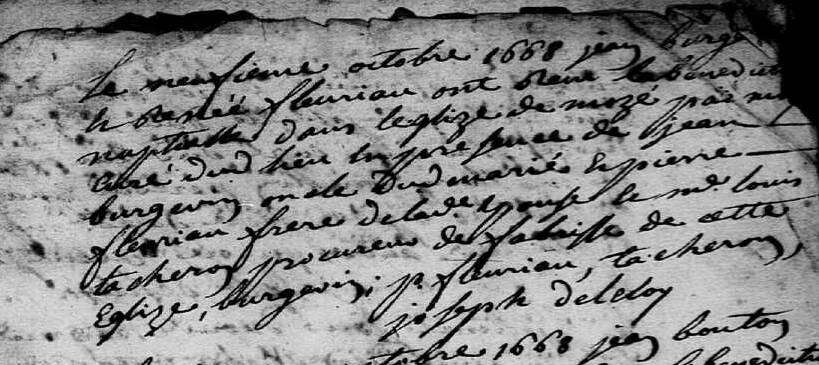 Le neufieme octobre 1668 jean burge
& Renée fleuriau ont Receu la benedicti
nuptialle dans leglize de mozé par moy
curé dud lieu en presence de jean
burgevin oncle dud marié & pierre
fleuriau frere de lade epouse & me louis
tacheron procureur de fabrisse de cette
Eglize, burgevin, p fleuriau, tacheron,
joseph deleloy
octobre 1668 jean bouton
benedicti